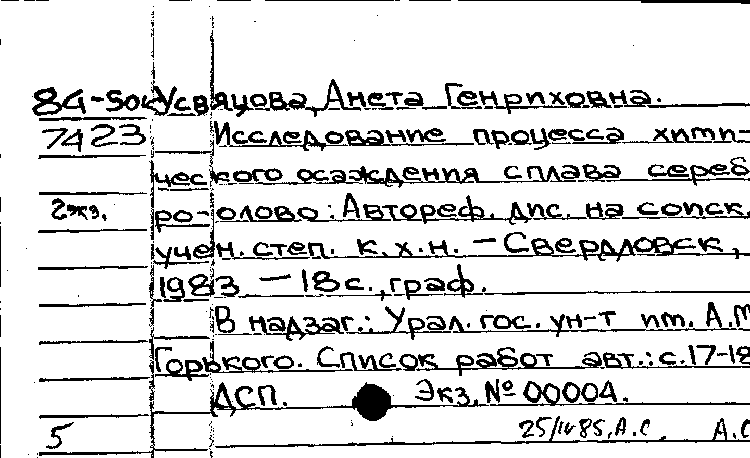 84-50к Усвяцова, Анета Генриховна.
7423 Исследование процесса хими-
ческого осаждения сплава сереб
2экз. ро-олово: Автореф. дис. на соиск.
учен. степ. к.х.н. - Свердловск,
1983 - 18 с., граф.
В надзаг.: Урал. гос. ун-т им. А.М
Горького. Список работ авт.: с.17-18
ДСП. Экз. № 00004.
5 А.С.